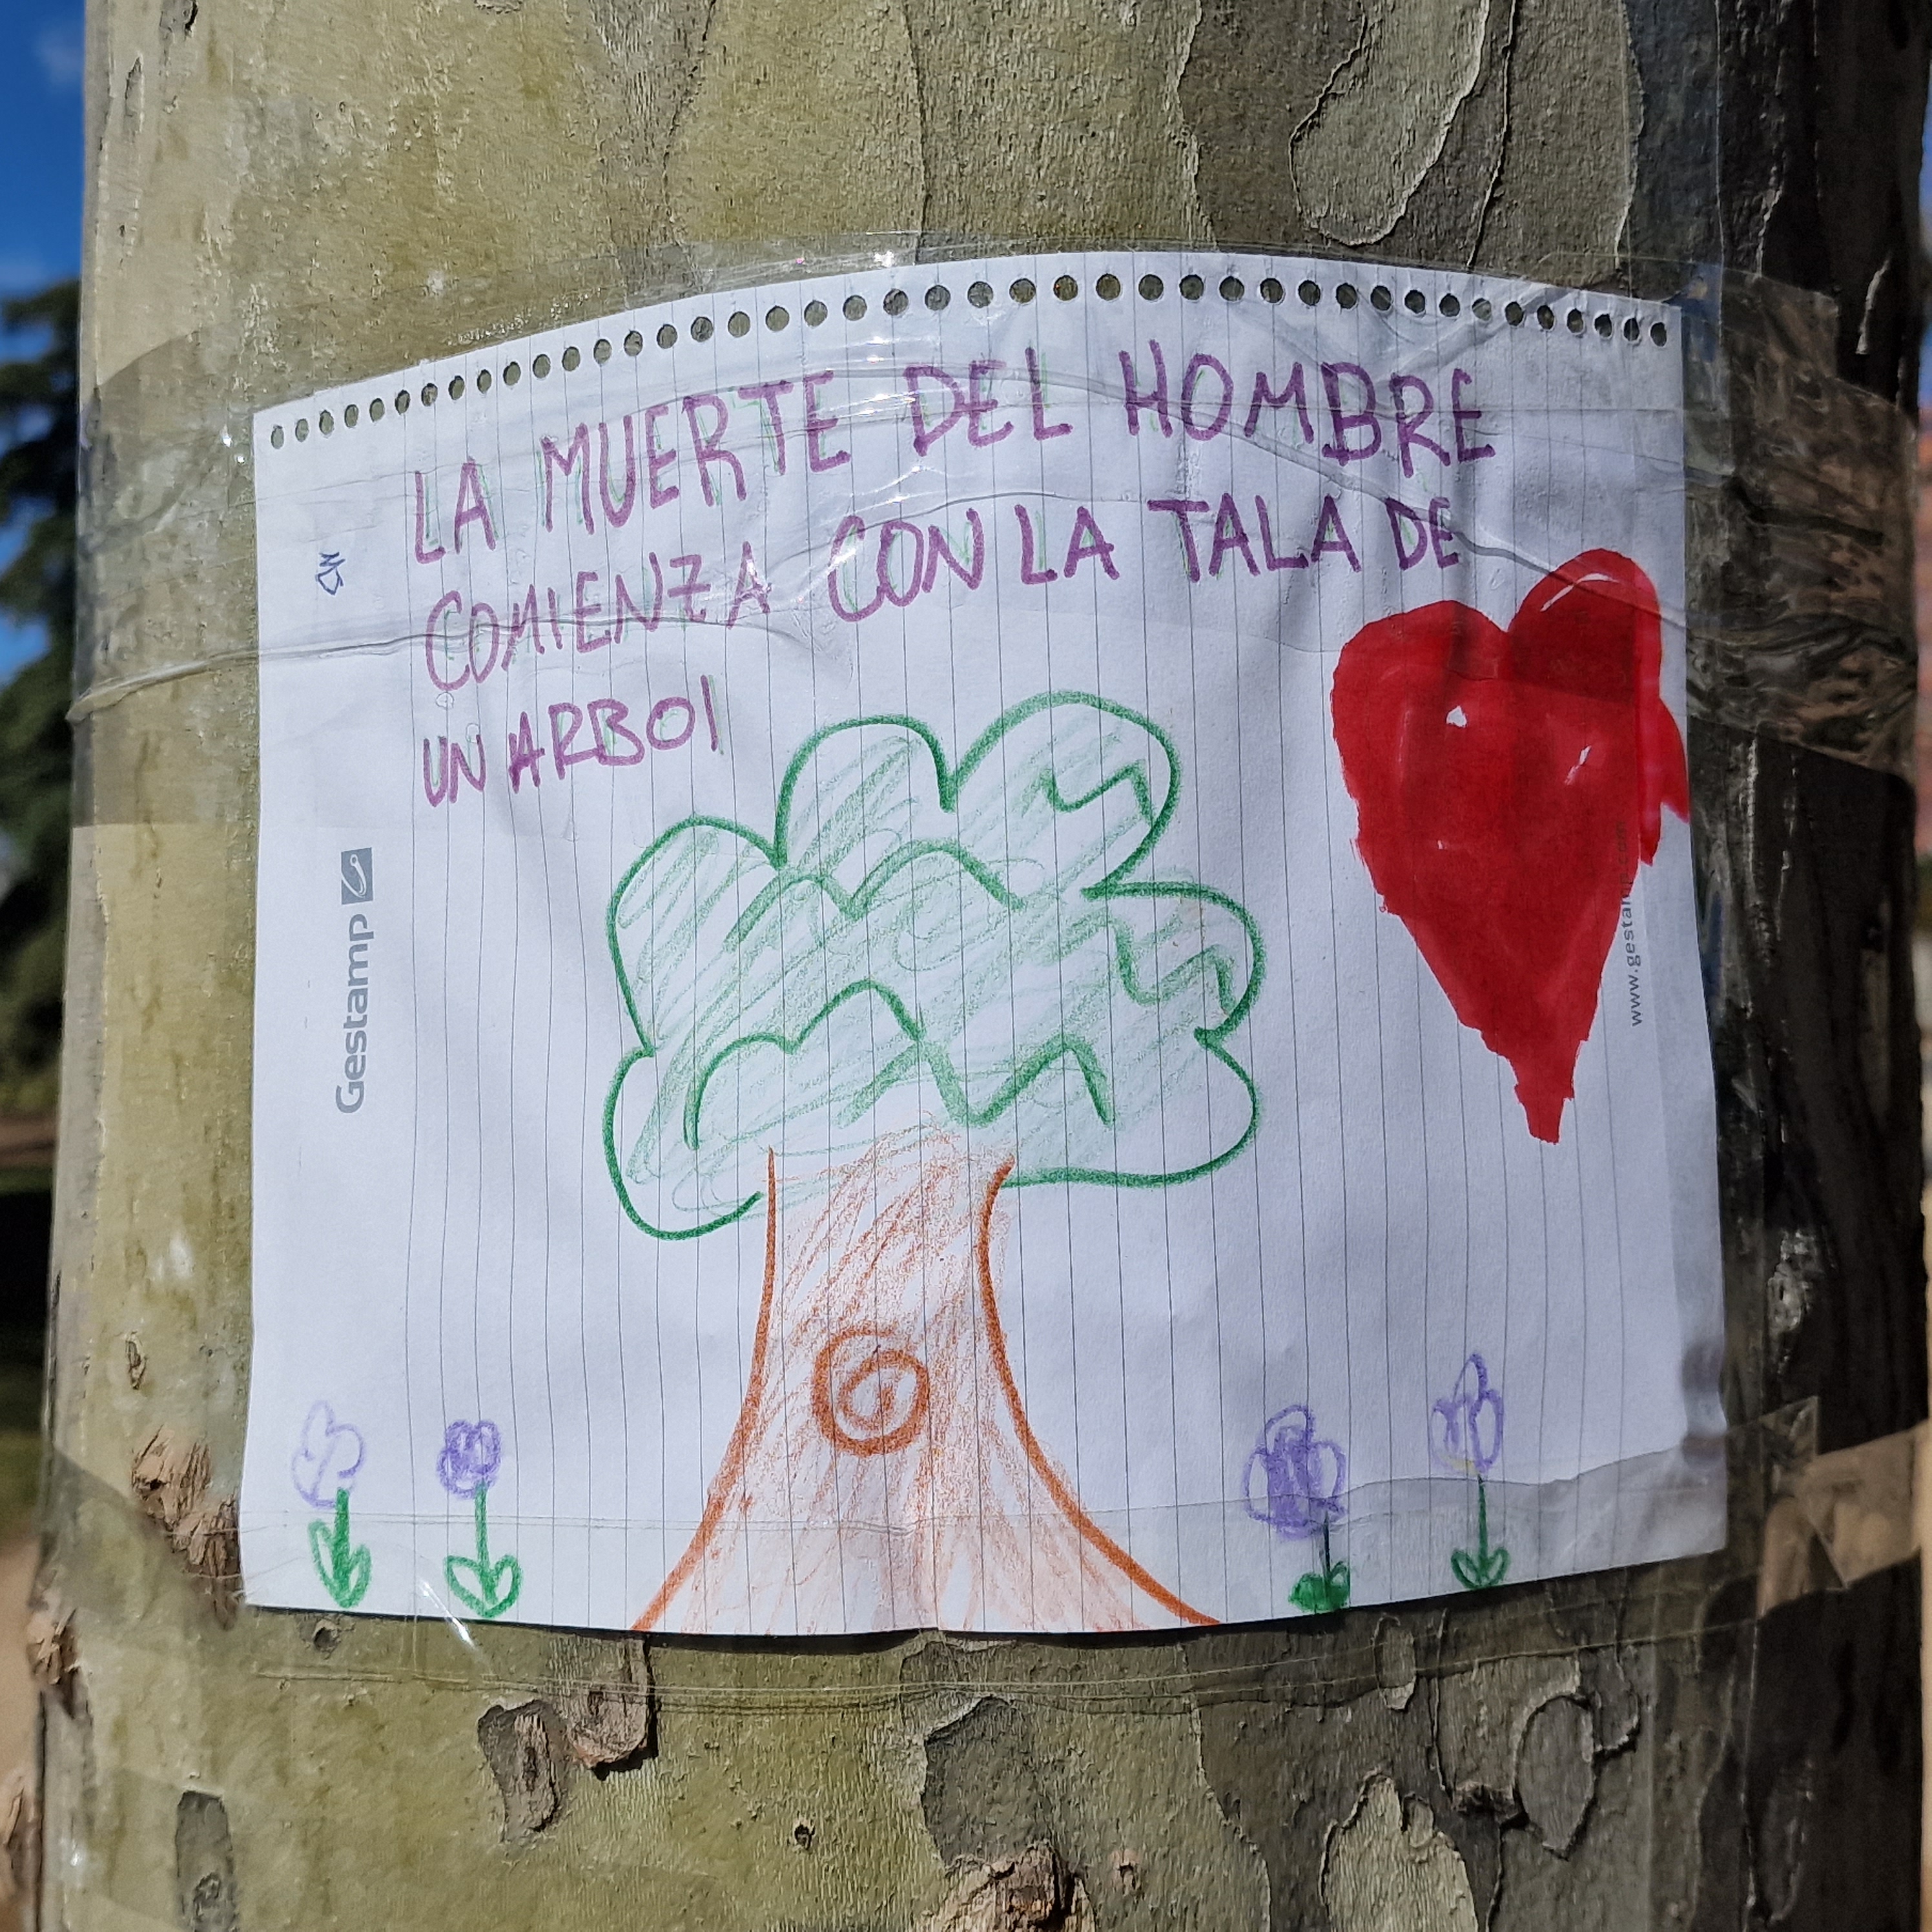 LA MUERTE DEL HOMBRE
COMIENZA CON LA TALA DE
UN ARBOl
Gestamp